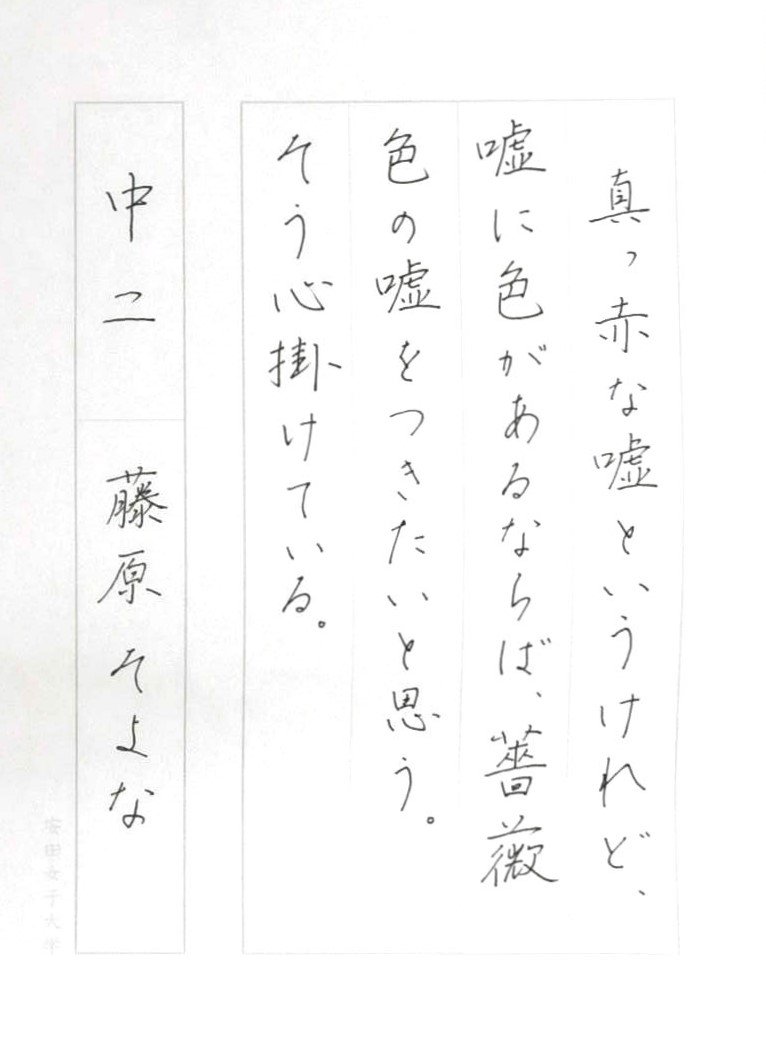 真っ赤な嘘というけれど、
嘘に色があるならば、薔薇
色の嘘をつきたいと思う。
そう心掛けている。
中二 藤原そよな
安田女子大学